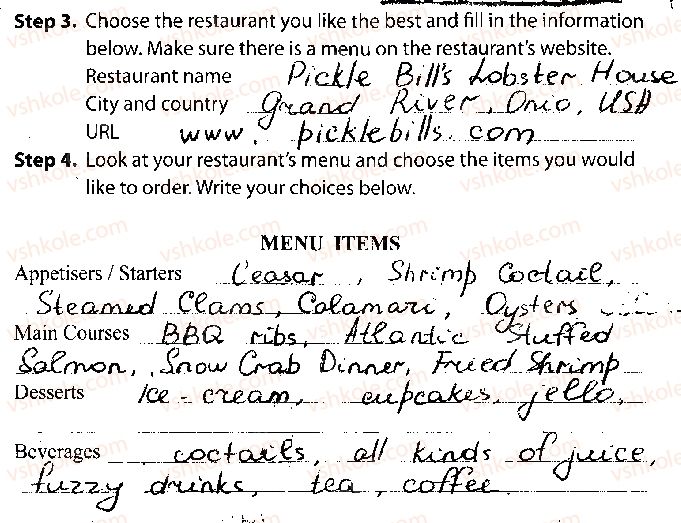 Step 3. Choose the restaurant you like the best and fill in the information
below. Make sure there is a menu on the restaurant's website.
Restaurant name Pickle Bill's Lobster House
City and country Grand River, Ohio, USA
URL www. picklebills.com
Step 4. Look at your restaurant's menu and choose the items you would
like to order. Write your choices below.
MENU ITEMS
Appetisers / Starters Ceasar, Shrimp Coctail,
Steamed Clams, Calamari, Oysters
Main Courses BBQ ribs, Atlantic Stuffed
Salmon, Snow Crab Dinner, Fried Shrimp
Desserts Ice-cream, cupcakes, jello,
Beverages coctails, all kinds of juice,
fuzzy drinks, tea, coffee